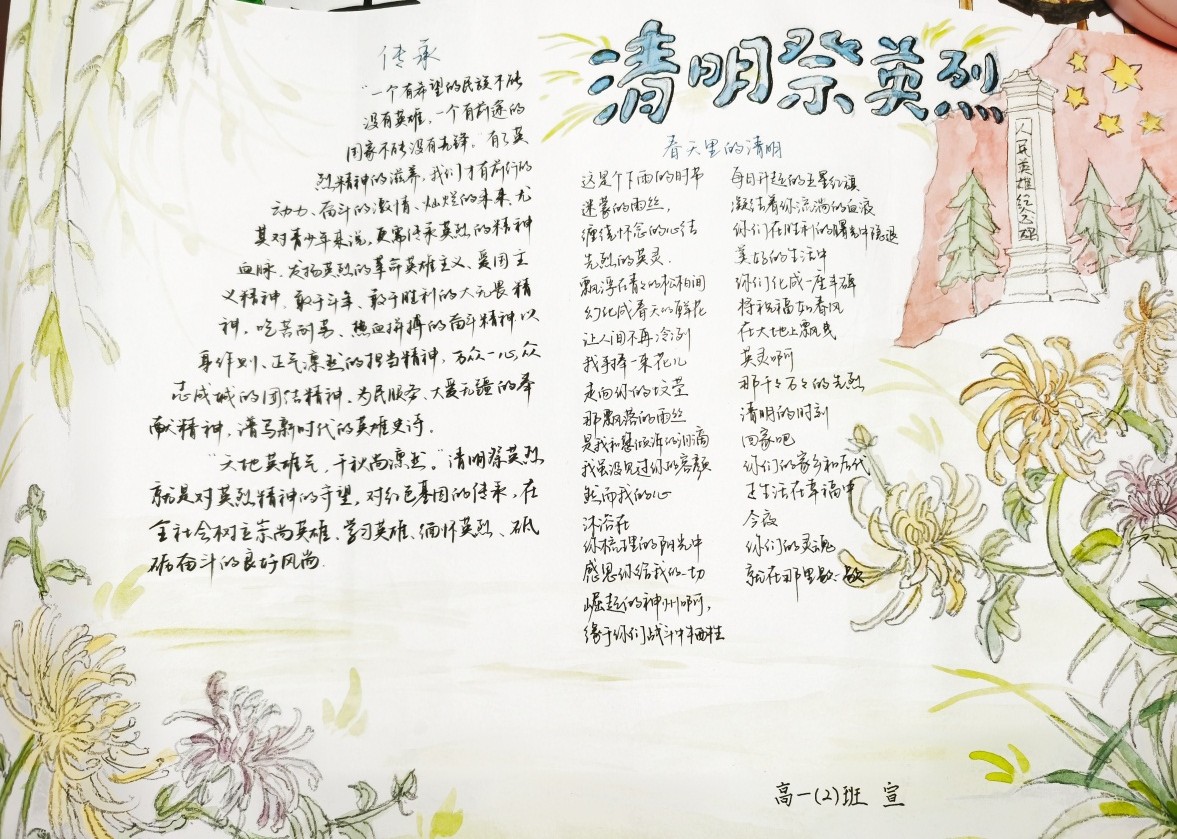 清明祭英烈
传承
“一个有希望的民族不能
没有英雄,一个有前途的
国家不能没有先锋。”有了英
烈精神的滋养,我们才有前行的
动力、奋斗的激情、灿烂的未来。尤
其对青少年来说,更需传承英烈的精神
血脉、发扬英烈的革命英雄主义、爱国主
义精神、敢于斗争、敢于胜利的大无畏精
神,吃苦耐劳、热血拼搏的奋斗精神以
身作则、正气凛然的担当精神,万众一心、众
志成城的团结精神、为民服务、大爱无疆的奉
献精神,谱写新时代的英雄史诗。
“天地英雄气,千秋尚凛然。”清明祭英烈
就是对英烈精神的守望,对红色基因的传承,在
全社会树立崇尚英雄、学习英雄、缅怀英烈、砥
砺奋斗的良好风尚.
春天里的清明
这是个下雨的时节
迷蒙的雨丝,
缠绕怀念的心结
先烈的英灵.
飘浮在青青的松柏间
幻化成春天的鲜花
让人间不再冷冽
我手捧一束花儿
走向你的坟茔
那飘落的雨丝
是我和慧倾诉的泪滴
我虽没见过你的容颜
然而我的心
沐浴在
你梳理的阳光中
感恩你给我的一切
崛起的神州啊,
缘于你们战斗中牺牲
每日升起的五星红旗
凝结着你流淌的血液
你们在胜利的曙光中隐退
美好的生活中
你们化成一座丰碑
将祝福如春风
在大地上飘曳
英灵啊
那千千万万的先烈
清明的时刻
回家吧
你们的家乡和后代
正生活在幸福中
今夜
你们的灵魂
就在那里歇一歇
人民英雄纪念碑
高一(2)班 宣